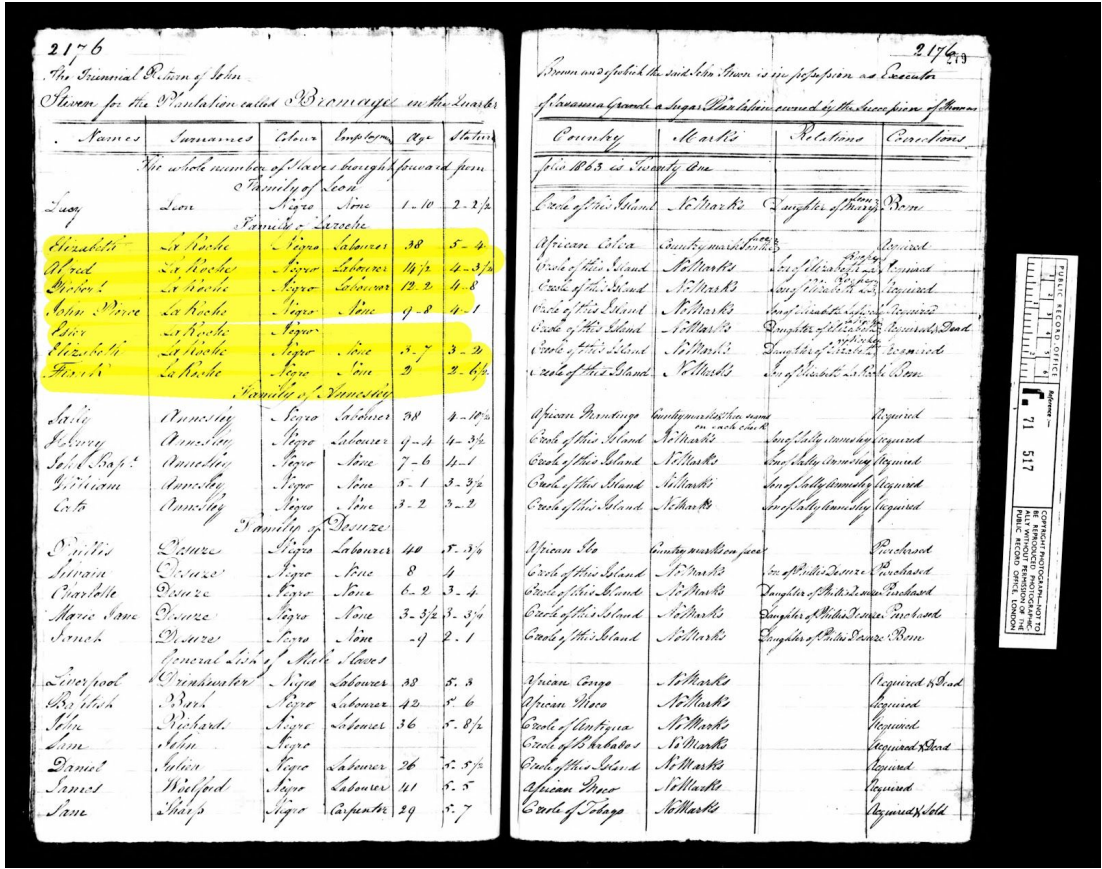 2176
The Triennial Return of John
Stiven for the Plantation called Bromayes in the Quarter
Names Surnames Colour Employm Age Stature
The whole number of Slaves brought forward from
Family of Leon
Lucy Leon Negro None 1-10 2-2 1/2
Family of Laroche
Elizabeth La Roche Negro Labourer 38 5-4
Alfred La Roche Negro Labourer 14 1/2 4-3 1/4
Robert La Roche Negro Labourer 12.2 4-8
John Pierre La Roche Negro None 9-8 4-1
Ester La Roche Negro
Elizabeth La Roche Negro None 3-7 3-2
La Roche Negro None 2 2-6 1/2
Family of Annesley
Sally Annesley Negro Labourer 38 4-10 1/2
Henry Annesley Negro Labourer 9-4 4-3 1/2
John Bapt. Annesley Negro None 7-6 4-1
William Annesley Negro None 5-1 3-3 1/2
Cato Annesley Negro None 3-2 3-2
Family of Desuze
Phillis Desuze Negro Labourer 40 5-3/4
Silvain Desuze Negro None 8 4
Charlotte Desuze Negro None 6-2 3-4
Marie Jane Desuze Negro None 3-3 1/2 3-3/4
Desuze Negro None -9 2-1
General List of Male Slaves
Liverpool Drinkwater Negro Labourer 38 5.3
Baptish Negro Labourer 42 5-6
John Richards Negro Labourer 36 5-8 1/2
Sam John Negro
Daniel Julien Negro Labourer 26 5-5 1/2
James Woolford Negro Labourer 41 5-5
Sam Sharp Negro Carpenter 29 5-7
2176
279
Brown and of which the said John Stiven is in possession as Executor
of Savanna Grande a Sugar Plantation owned in the Succession of Thomas
Country Marks Relations Corrections
folio 1863 is Twenty One
Creole of this Island No Marks Daughter of Mary Leon Born
African Country marks on face Acquired
Creole of this Island No Marks Son of Elizabeth La Roche Acquired
Creole of this Island No Marks Son of Elizabeth La Roche Acquired
Creole of this Island No Marks Son of Elizabeth Acquired
Creole of this Island No Marks Daughter of Elizabeth Acquired & Dead
Creole of this Island No Marks Daughter of Elizabeth La Roche Acquired
Creole of this Island No Marks Son of Elizabeth La Roche Born
African Mandingo Country marks & three seams on each cheek Acquired
Creole of this Island No Marks Son of Sally Annesley Acquired
Creole of this Island No Marks Son of Sally Annesley Acquired
Creole of this Island No Marks Son of Sally Annesley Acquired
Creole of this Island No Marks Son of Sally Annesley Acquired
African Ibo Country marks on face Purchased
Creole of this Island No Marks Son of Phillis Desuze Purchased
Creole of this Island No Marks Daughter of Phillis Desuze Purchased
Creole of this Island No Marks Daughter of Phillis Desuze Purchased
Creole of this Island No Marks Daughter of Phillis Desuze Born
African Congo No Marks Acquired & Dead
African Moco No Marks Acquired
Creole of Antigua No Marks Acquired
Creole of Bhababos No Marks Acquired & Dead
Creole of this Island No Marks Acquired
African Moco No Marks Acquired
Creole of Tobago No Marks Acquired & Sold
PUBLIC RECORD OFFICE
1 2 3 4 5 6
Reference:-
T. 71 517
COPYRIGHT PHOTOGRAPH—NOT TO
BE REPRODUCED PHOTOGRAPHIC-
ALLY WITHOUT PERMISSION OF THE
PUBLIC RECORD OFFICE, LONDON